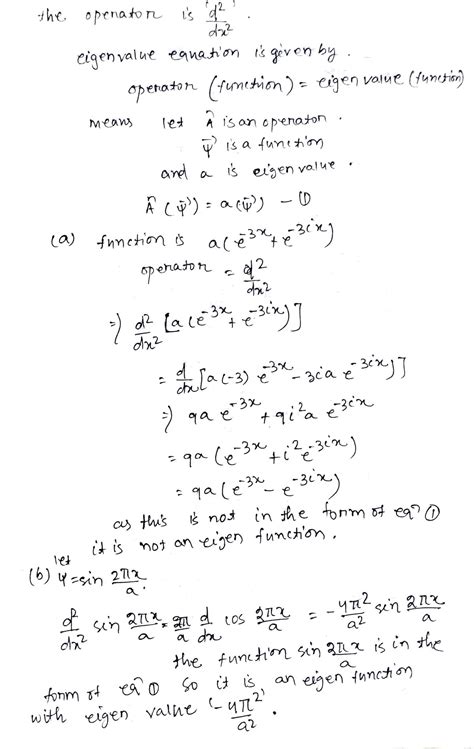 the operator is d²/dx² .
eigenvalue equation is given by .
operator (function) = eigen value (function)
means let Â is an operator .
ψ is a function
and a is eigen value .
Â (ψ) = a(ψ) – ①
(a) function is a(e^-3x + e^-3ix)
operator = d²/dx²
⇒) d²/dx² [a(e^-3x + e^-3ix)]
= d/dx [a(-3) e^-3x - 3ia e^-3ix)]
⇒) 9a e^-3x + 9i²a e^-3ix
= 9a (e^-3x + i² e^-3ix)
= 9a (e^-3x - e^-3ix)
as this is not in the form of eqn ①
it is not an eigen function .
(b) let ψ = sin 2πx/a .
d²/dx² sin 2πx/a = 2π/a d/dx cos 2πx/a = -4π²/a² sin 2πx/a
the function sin 2πx/a is in the
form of eqn ① so it is an eigen function
with eigen value '-4π²/a²' .